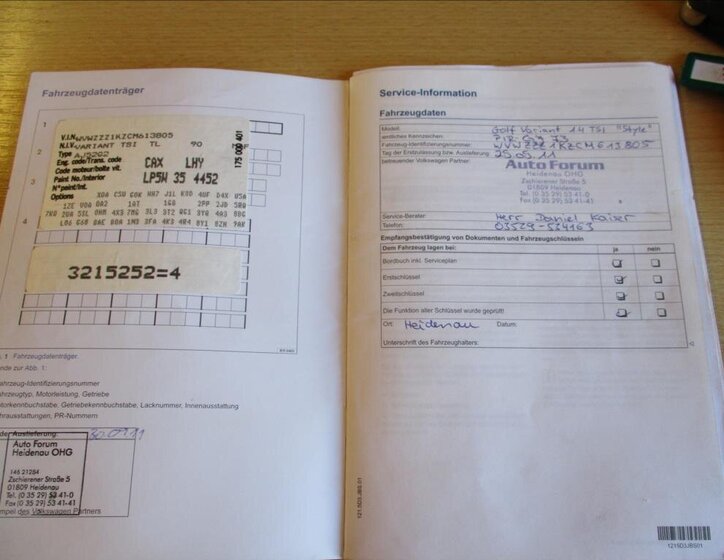 Fahrzeugdatenträger
1
2
3
4
V.I.N. WVWZZZ1KZCM613805
N.I.V. VARIANT TSI TL 90
Type AJ5202
Eng. code/Trans. code CAX LHY
Code moteur/boîte vit.
Paint No./Interior LP5W 35 4452
N° paint/int.
Options
175 000 401
3215252=4
1 Fahrzeugdatenträger.
nde zur Abb. 1:
ahrzeug-Identifizierungsnummer
ahrzeugtyp, Motorleistung, Getriebe
torkennbuchstabe, Getriebekennbuchstabe, Lacknummer, Innenausstattung
hrausstattungen, PR-Nummern
der Auslieferung:
Auto Forum
Heidenau OHG
146 21284
Zschierener Straße 5
01809 Heidenau
Tel. (0 35 29) 53 41-0
Fax (0 35 29) 53 41-41
mpel des Volkswagen Partners
Service-Information
Fahrzeugdaten
Modell: Golf Variant 1.4 TSI "Style"
amtliches Kennzeichen:
Fahrzeug-Identifizierungsnummer: WVWZZZ1KZCM613805
Tag der Erstzulassung bzw. Auslieferung:
betreuender Volkswagen Partner:
Auto Forum
Heidenau OHG
Zschierener Straße 5
01809 Heidenau
Tel. (0 35 29) 53 41-0
Fax (0 35 29) 53 41-41
Service-Berater: Herr Daniel Kaiser
Telefon: 03529-534163
Empfangsbestätigung von Dokumenten und Fahrzeugschlüsseln
Dem Fahrzeug lagen bei: ja nein
Bordbuch inkl. Serviceplan
Erstschlüssel
Zweitschlüssel
Die Funktion aller Schlüssel wurde geprüft!
Ort: Heidenau Datum:
Unterschrift des Fahrzeughalters:
121.5D3.JBS.01
1215D3JBS01